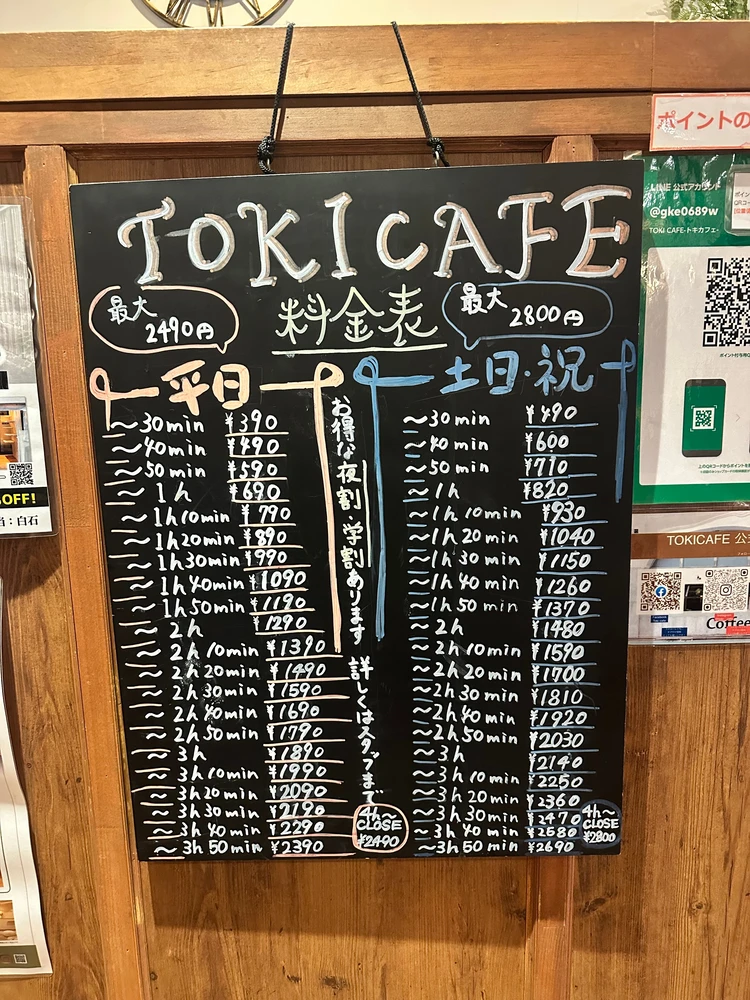 TOKICAFE
最大
2490円
料金表
最大
2800円
平日
~30min ¥390
~40min ¥490
~50min ¥590
~1h ¥690
~1h10min ¥790
~1h20min ¥890
~1h30min ¥990
~1h40min ¥1090
~1h50min ¥1190
~2h ¥1290
~2h10min ¥1390
~2h20min ¥1490
~2h30min ¥1590
~2h40min ¥1690
~2h50min ¥1790
~3h ¥1890
~3h10min ¥1990
~3h20min ¥2090
~3h30min ¥2190
~3h40min ¥2290
~3h50min ¥2390
4h~
CLOSE
¥2490
お得な夜割・学割あります
詳しくはスタッフまで
土日・祝
~30min ¥490
~40min ¥600
~50min ¥710
~1h ¥820
~1h10min ¥930
~1h20min ¥1040
~1h30min ¥1150
~1h40min ¥1260
~1h50min ¥1370
~2h ¥1480
~2h10min ¥1590
~2h20min ¥1700
~2h30min ¥1810
~2h40min ¥1920
~2h50min ¥2030
~3h ¥2140
~3h10min ¥2250
~3h20min ¥2360
~3h30min ¥2470
~3h40min ¥2580
~3h50min ¥2690
4h~
CLOSE
¥2800
ポイントの
LINE 公式アカウント
@gke0689w
TOKI CAFE-トキカフェ-
TOKICAFE 公
Coffee
OFF!
:白石